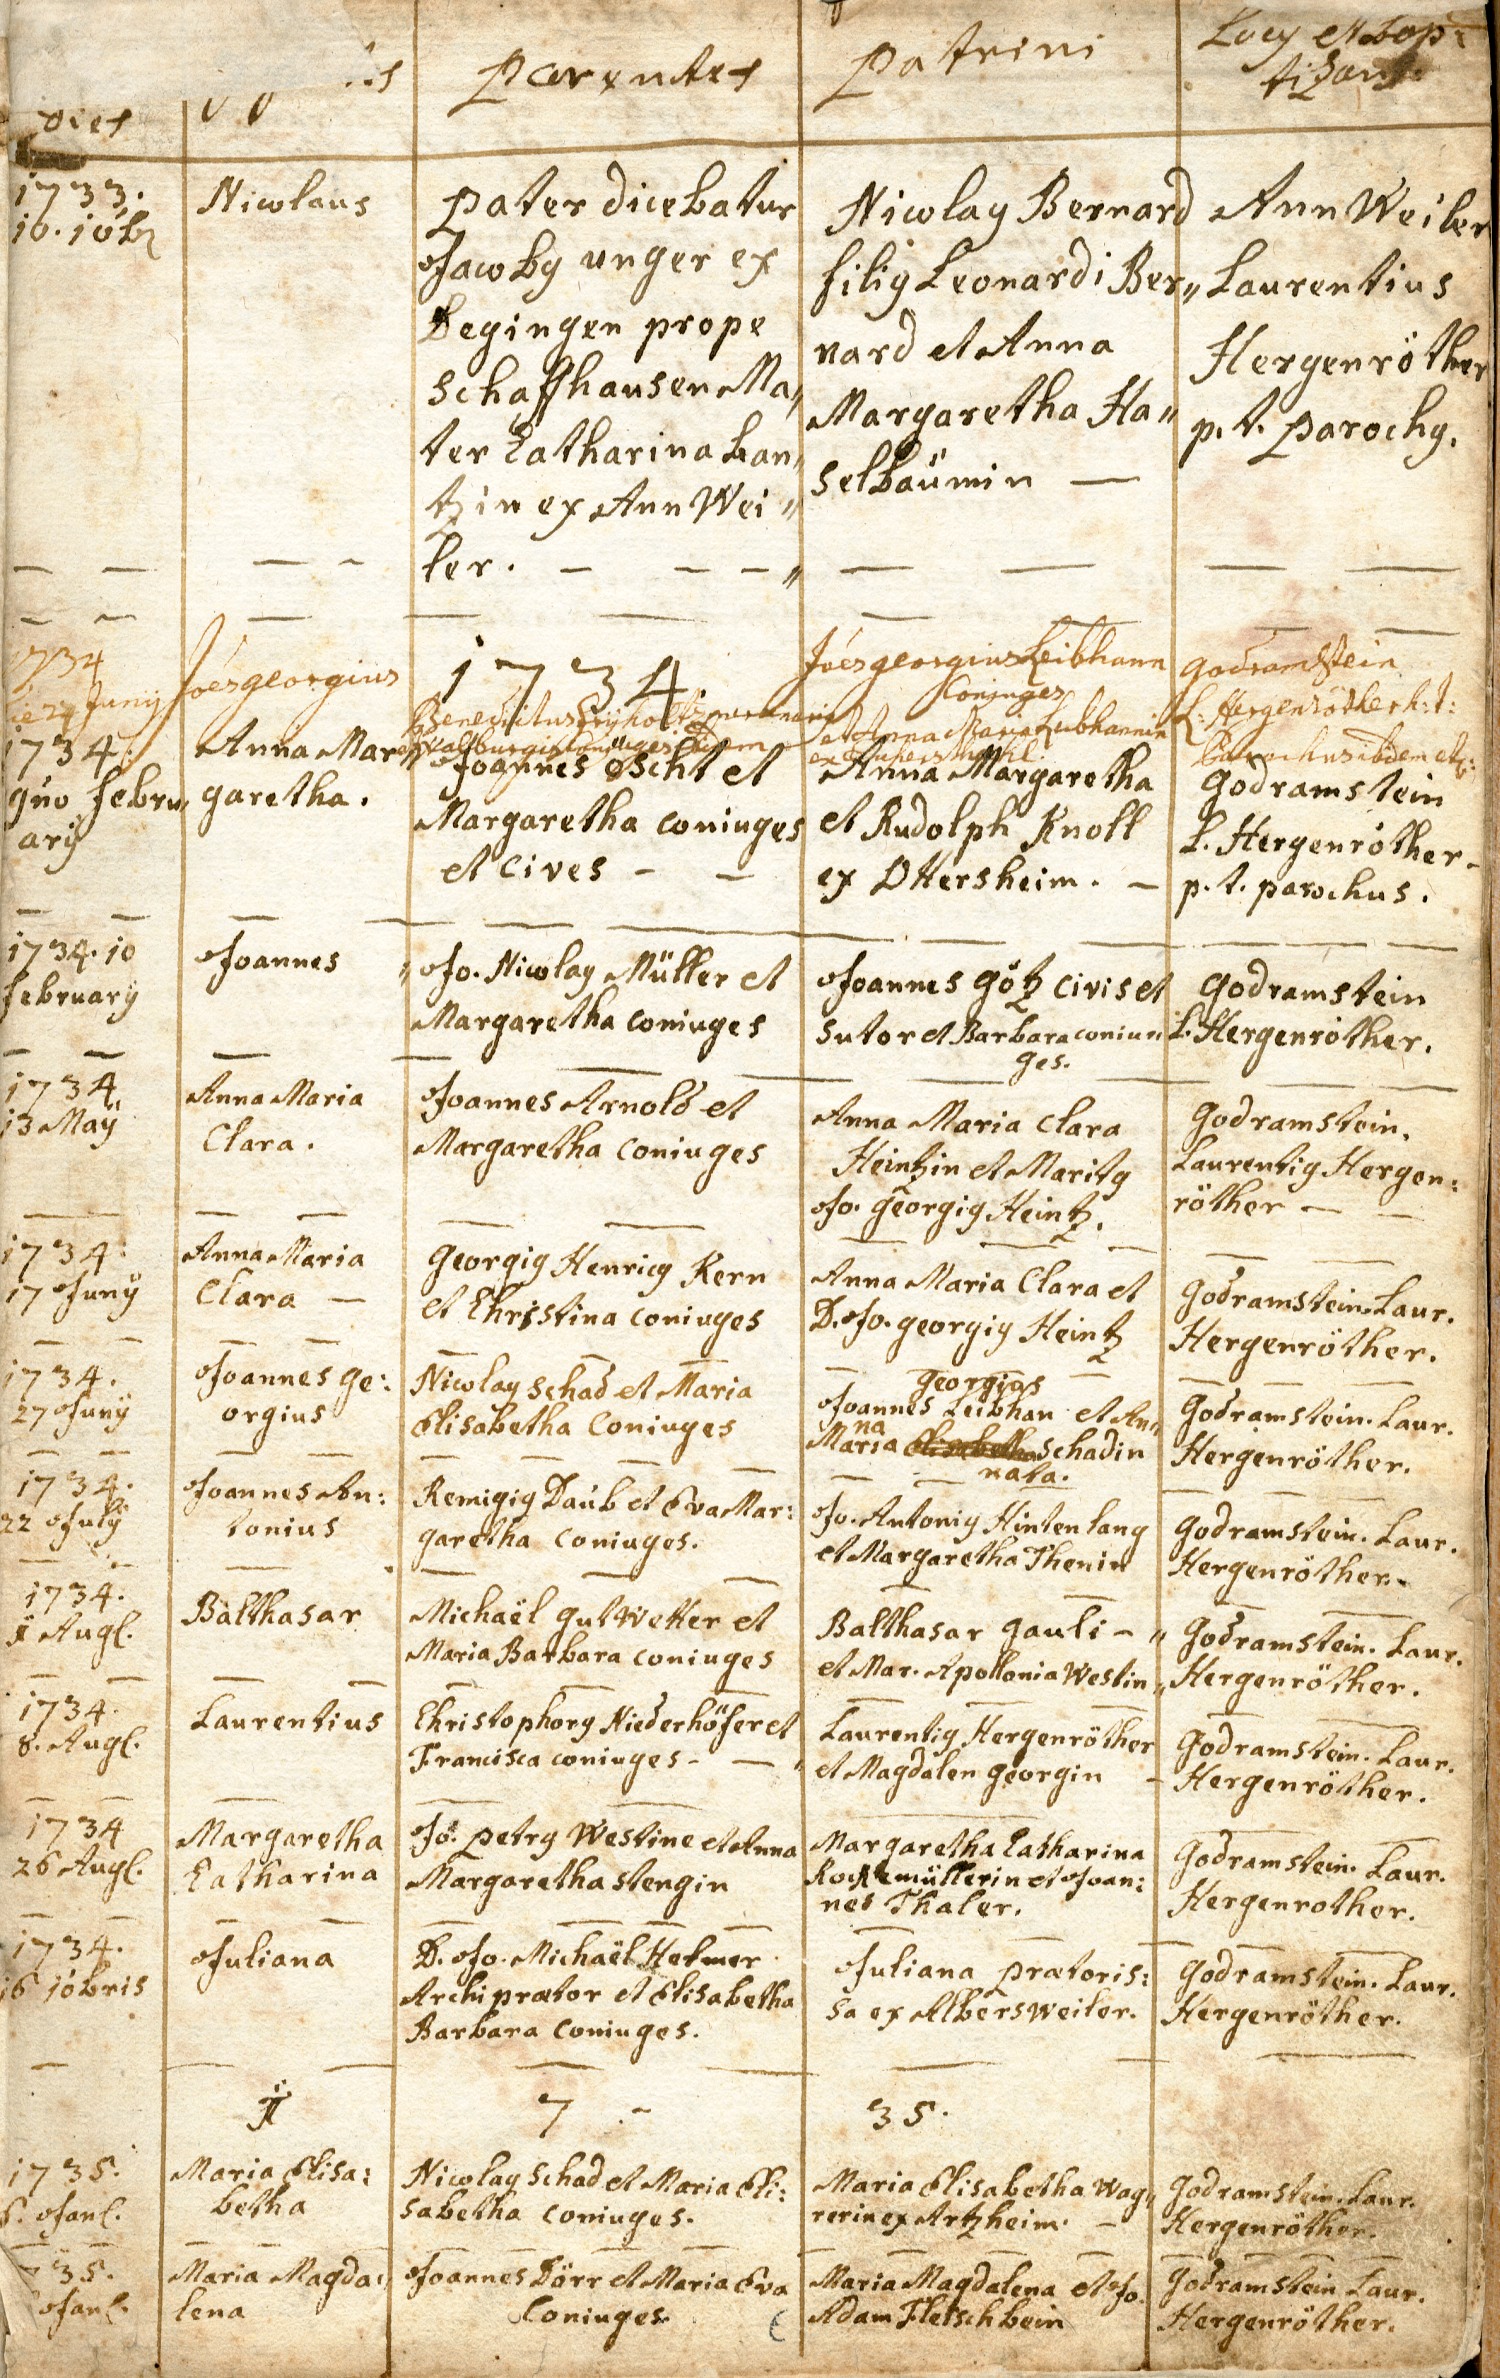 Dies
Parentes
Patrini
Locus et bap:
tizans.
1733.
10. 10br
Nicolaus
Pater dicebatur
Jacobus unger ex
Begingen prope
schaffhausen Ma„
ter Catharina Lan„
tzin ex AnnWei„
ler. — — — „
Nicolaus Bernard
filius Leonardi Ber„
nard et Anna
Margaretha Ha„
selbaümin —
AnnWeiler
Laurentius
Hergenröther
p. t. Parochus.
1734
Junij
Jöes georgius
1734.
Benedictus
Walburgis Coniuges
Jöes georgius Leibhann
Coniuges
et Anna Maria Leibhannin
godramstein
L: Hergenröther h: t:
Parochus ibidem etc:
1734.
9no febru„
arÿ
Anna Mar„
garetha.
Joannes öscht et
Margaretha coniuges
et Cives — —
Anna Margaretha
et Rudolph Knoll
ex Ottersheim. —
godramstein
L. Hergenröther
p. t. parochus.
1734. 10
februarÿ
Joannes
Jo. Nicolaus Müller et
Margaretha coniuges
Joannes götz Civis et
sutor et Barbara coniun
ges.
godramstein
L. Hergenröther.
1734
13 Maÿ
Anna Maria
Clara.
Joannes Arnold et
Margaretha coniuges
Anna Maria Clara
Heintzin et Maritus
Jo. georgius Heintz.
godramstein.
Laurentius Hergen:
röther — —
1734.
17 Junÿ
Anna Maria
Clara —
georgius Henricus Kern
et Christina coniuges
Anna Maria Clara et
D. Jo. georgius Heintz
godramstein. Laur.
Hergenröther.
1734.
27 Junÿ
Joannes ge:
orgius
Nicolaus schad et Maria
Elisabetha Coniuges
georgius
Joannes Leibhan et An„
na
Maria Elisabetha schadin
nata.
godramstein. Laur.
Hergenröther.
1734.
22 Julÿ
Joannes An:
tonius
Remigius Daub et Eva Mar:
garetha coniuges.
Jo. Antonius Hintenlang
et Margaretha Thenin
godramstein. Laur.
Hergenröther.
1734.
1 Augl.
Balthasar
Michaël gutwetter et
Maria Barbara coniuges
Balthasar gauli — „
et Mar. Apollonia Westin„
godramstein. Laur.
Hergenröther.
1734.
8. Augl.
Laurentius
Christophorus Niederhöfer et
Francisca coniuges — — „
Laurentius Hergenröther
et Magdalen georgin —
godramstein. Laur.
Hergenröther.
1734
26 Augl.
Margaretha
Catharina
Jo. petrus Westine et Anna
Margaretha stengin
Margaretha Catharina
Kochemüllerin et Joan:
nes Thaler.
godramstein. Laur.
Hergenrother.
1734.
16 10bris
Juliana
D. Jo. Michaël Helmer
Archiprætor et Elisabetha
Barbara coniuges.
Juliana prætoris:
sa ex Albersweiler.
godramstein. Laur.
Hergenröther.
1 7 35.
1735.
6. Janl.
Maria Elisa:
betha
Nicolaus schad et Maria Eli:
sabetha coniuges.
Maria Elisabetha Wag„
rerin ex Artzheim. —
godramstein. Laur.
Hergenröther.
35.
Janl.
Maria Magda:
lena
Joannes Dörr et Maria Eva
Coniuges
Maria Magdalena et Jo.
Adam Fletschbein
godramstein Laur.
Hergenröther.